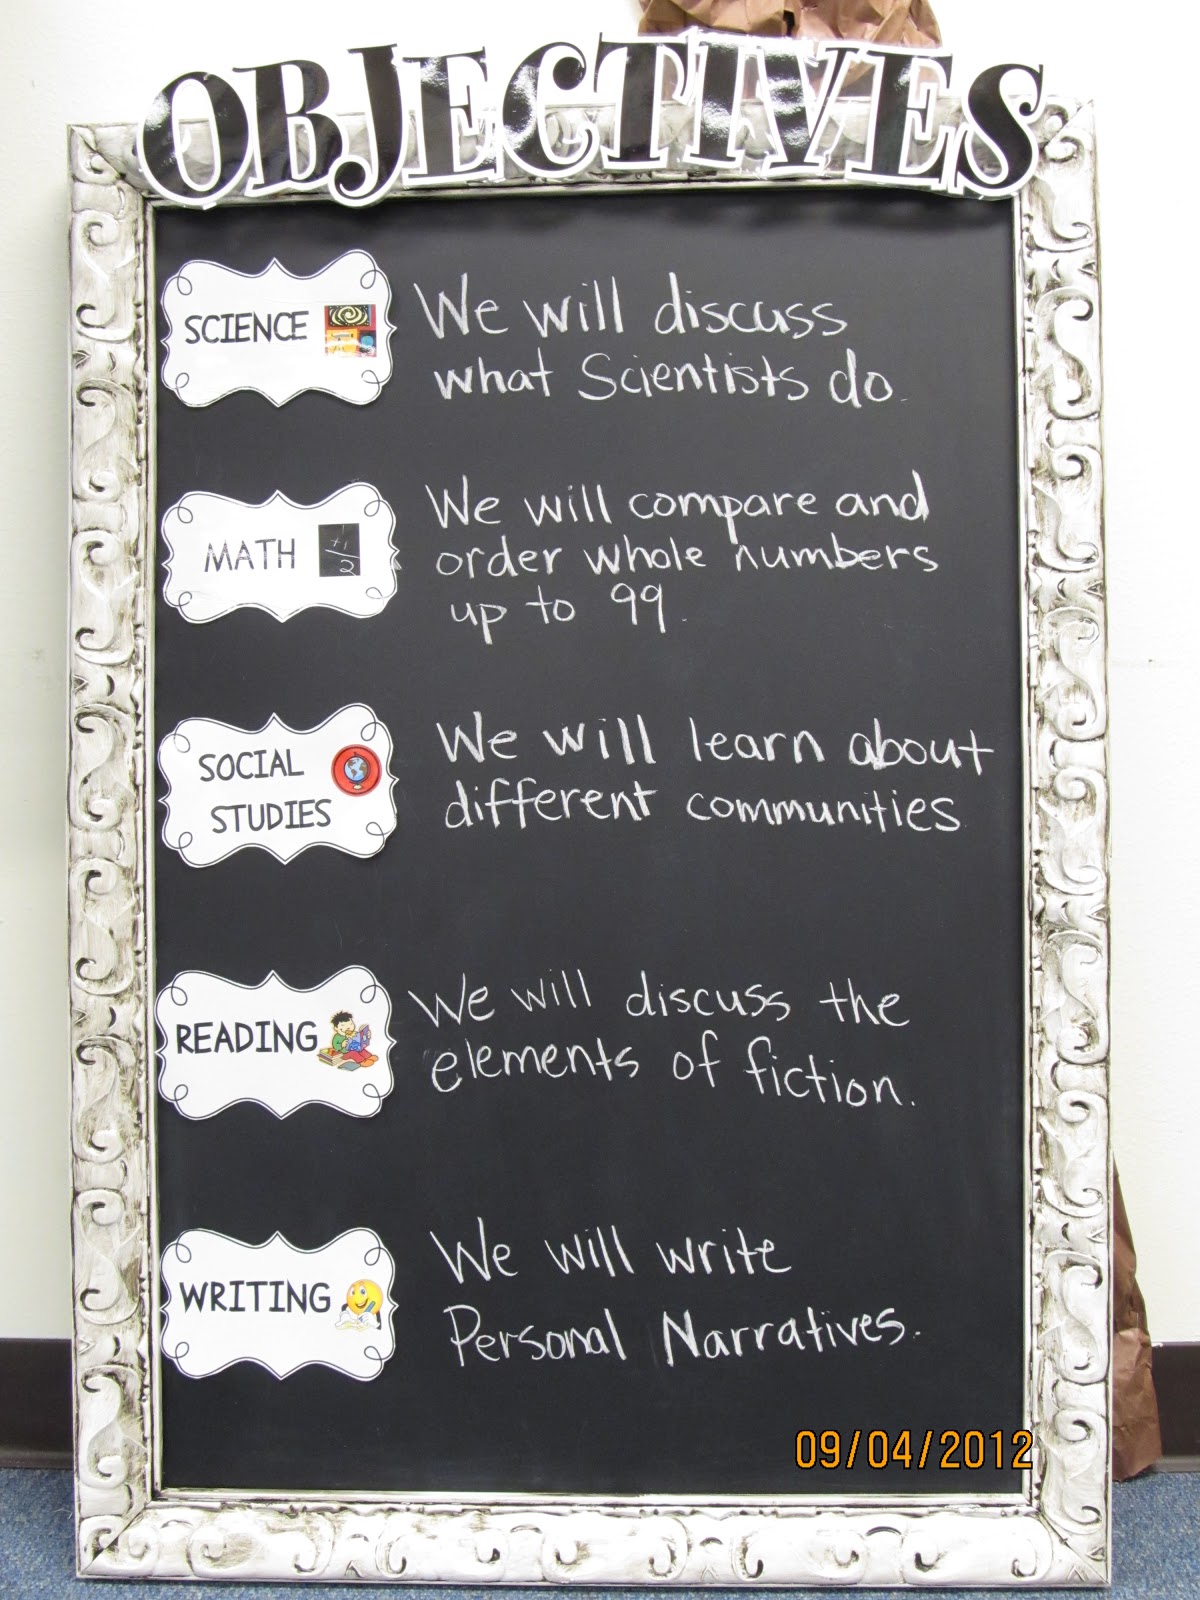 OBJECTIVES
SCIENCE
We will discuss
what Scientists do.
MATH
+1
2
We will compare and
order whole numbers
up to 99.
SOCIAL
STUDIES
We will learn about
different communities
READING
We will discuss the
elements of fiction.
WRITING
We will write
Personal Narratives.
09/04/2012